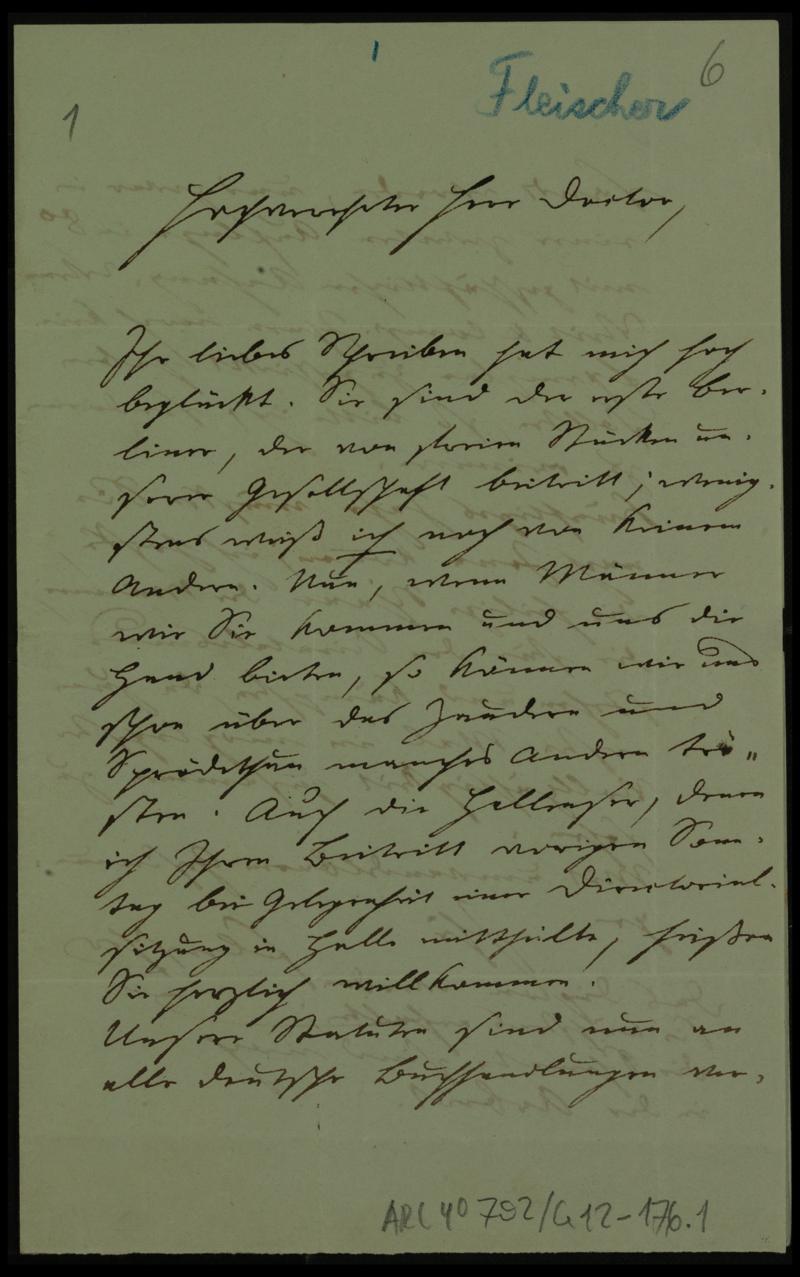 1
6
Fleischer
1
Hochverehrter Herr Doctor,
Ihr liebes Schreiben hat mich hoch
beglückt. Sie sind der erste Ber-
liner, der von freien Stücken un-
serer Gesellschaft beitritt; wenig-
stens weiß ich noch von keinem
Andern. Nun, wenn Männer
wie Sie kommen und uns die
Hand bieten, so können wir uns
schon über das Zaudern und
Sprödethun manches Andern trö-
sten. Auch die Hallenser, denen
ich Ihren Beitritt vorigen Sonn-
tag bei Gelegenheit einer Directorial-
sitzung in Halle mittheilte, heißen
Sie herzlich willkommen.
Unsere Statuten sind nun an
alle deutsche Buchhandlungen ver-
ARC 4° 792/G12-176.1